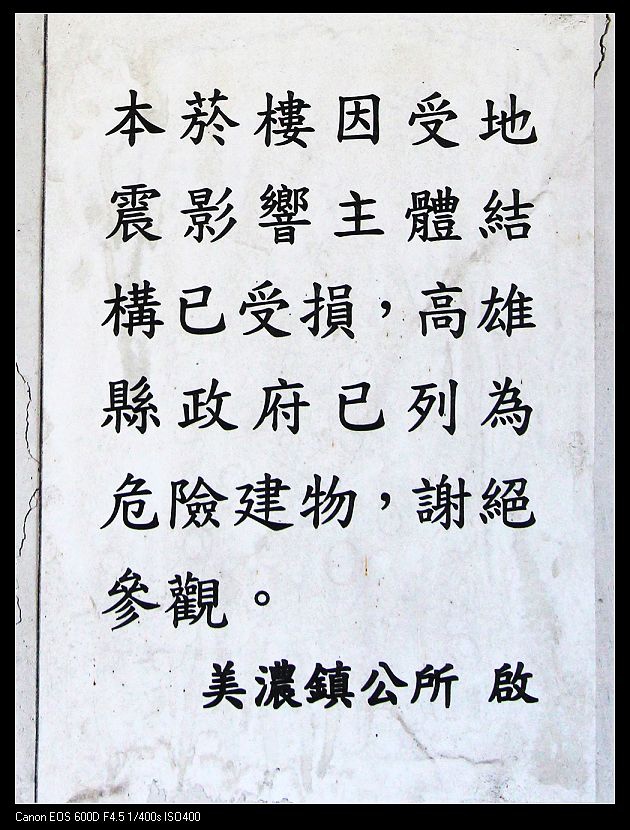 本菸樓因受地
震影響主體結
構已受損，高雄
縣政府已列為
危險建物，謝絕
參觀。
美濃鎮公所 啟
Canon EOS 600D F4.5 1/400s ISO400